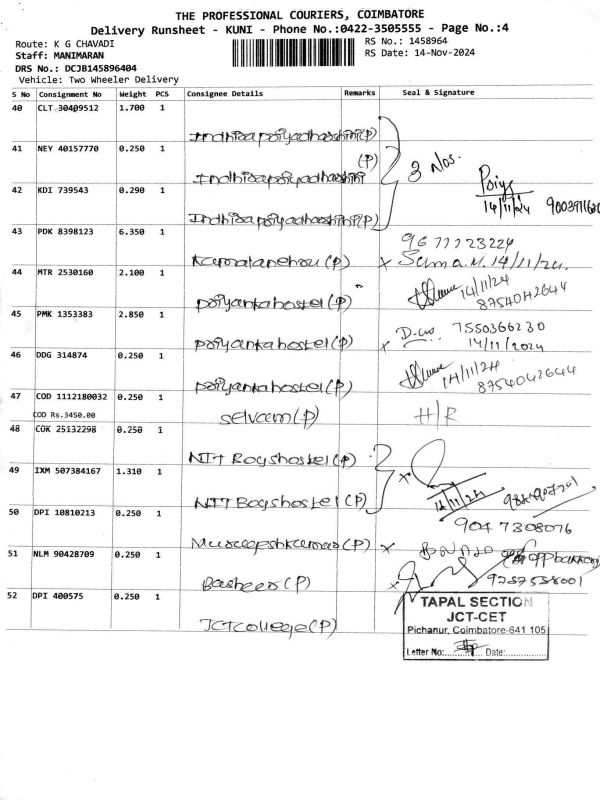 THE PROFESSIONAL COURIERS, COIMBATORE
Delivery Runsheet - KUNI - Phone No.:0422-3505555 - Page No.:4
Route: K G CHAVADI
RS No.: 1458964
Staff: MANIMARAN
RS Date: 14-Nov-2024
DRS No.: DCJB145896404
Vehicle: Two Wheeler Delivery
S No Consignment No Weight PCS Consignee Details Remarks Seal & Signature
40 CLT 30409512 1.700 1
Indhirapriyadharshini(P)
41 NEY 40157770 0.250 1 (P)
Indhirapriyadharshini
3 Nos.
42 KDI 739543 0.290 1
Priya
14/11/24
Indhirapriyadharshini(P)
43 PDK 8398123 6.350 1
Kamalanehru(P) x Suma.M. 14/11/24.
44 MTR 2530160 2.100 1
Priyankahostel(P)
14/11/24
45 PMK 1353383 2.850 1
Priyankahostel(P) x 7550366230
14/11/2024
46 DDG 314874 0.250 1
Priyankahostel(P)
14/11/24
8754042644
47 COD 1112180032 0.250 1
COD Rs.3450.00
Selvam(P) H/R
48 COK 25132298 0.250 1
NIT Boyshostel(P)
49 IXM 507384167 1.310 1 x
NIT Boyshostel(P)
14/11/24
50 DPI 10810213 0.250 1
9047308076
Murugeshkumar(P) x
51 NLM 90428709 0.250 1
Basheer(P) x
52 DPI 400575 0.250 1
JCTCollege(P)
TAPAL SECTION
JCT-CET
Pichanur, Coimbatore-641 105
Letter No:............ Date:..............